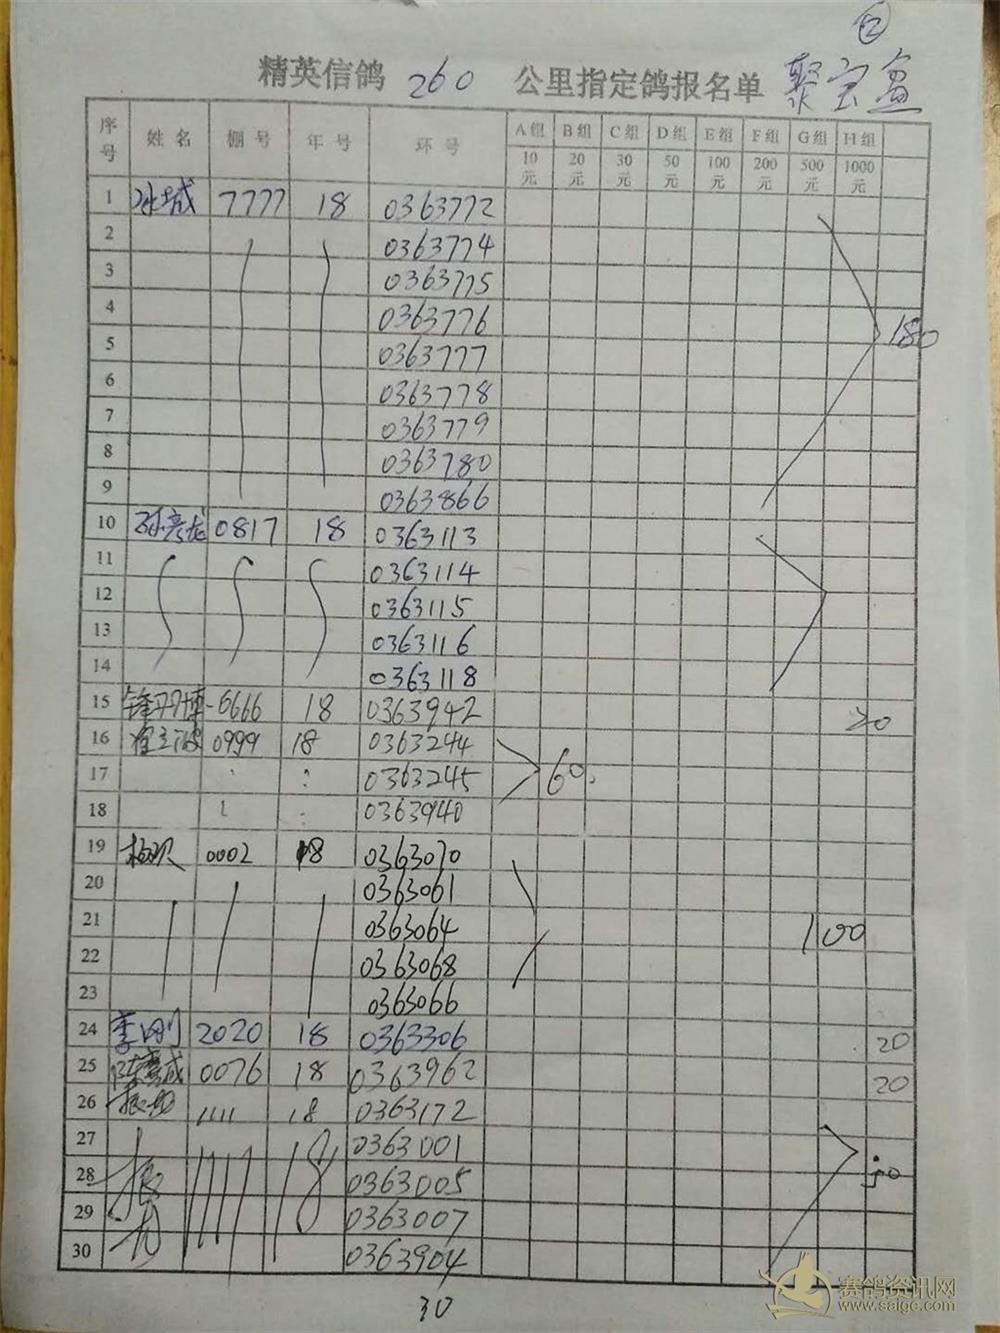 ②
精英信鸽 260 公里指定鸽报名单 聚宝盆
序号 姓名 棚号 年号 环号 A组 B组 C组 D组 E组 F组 G组 H组
10元 20元 30元 50元 100元 200元 500元 1000元
1 冰城 7777 18 0363772
2 0363774
3 0363775
4 0363776
5 0363777 180
6 0363778
7 0363779
8 0363780
9 0363866
10 孙彦龙 0817 18 0363113
11 0363114
12 0363115
13 0363116
14 0363118
15 6666 18 0363942 20
16 0999 18 0363244
17 0363245 60
18 0363940
19 0002 18 0363070
20 0363061
21 0363064 100
22 0363068
23 0363066
24 李刚 2020 18 0363306 20
25 0076 18 0363962 20
26 1111 18 0363172
27 1111 18 0363001
28 0363005
29 0363007
30 0363904
30
赛鸽资讯网
www.saige.com